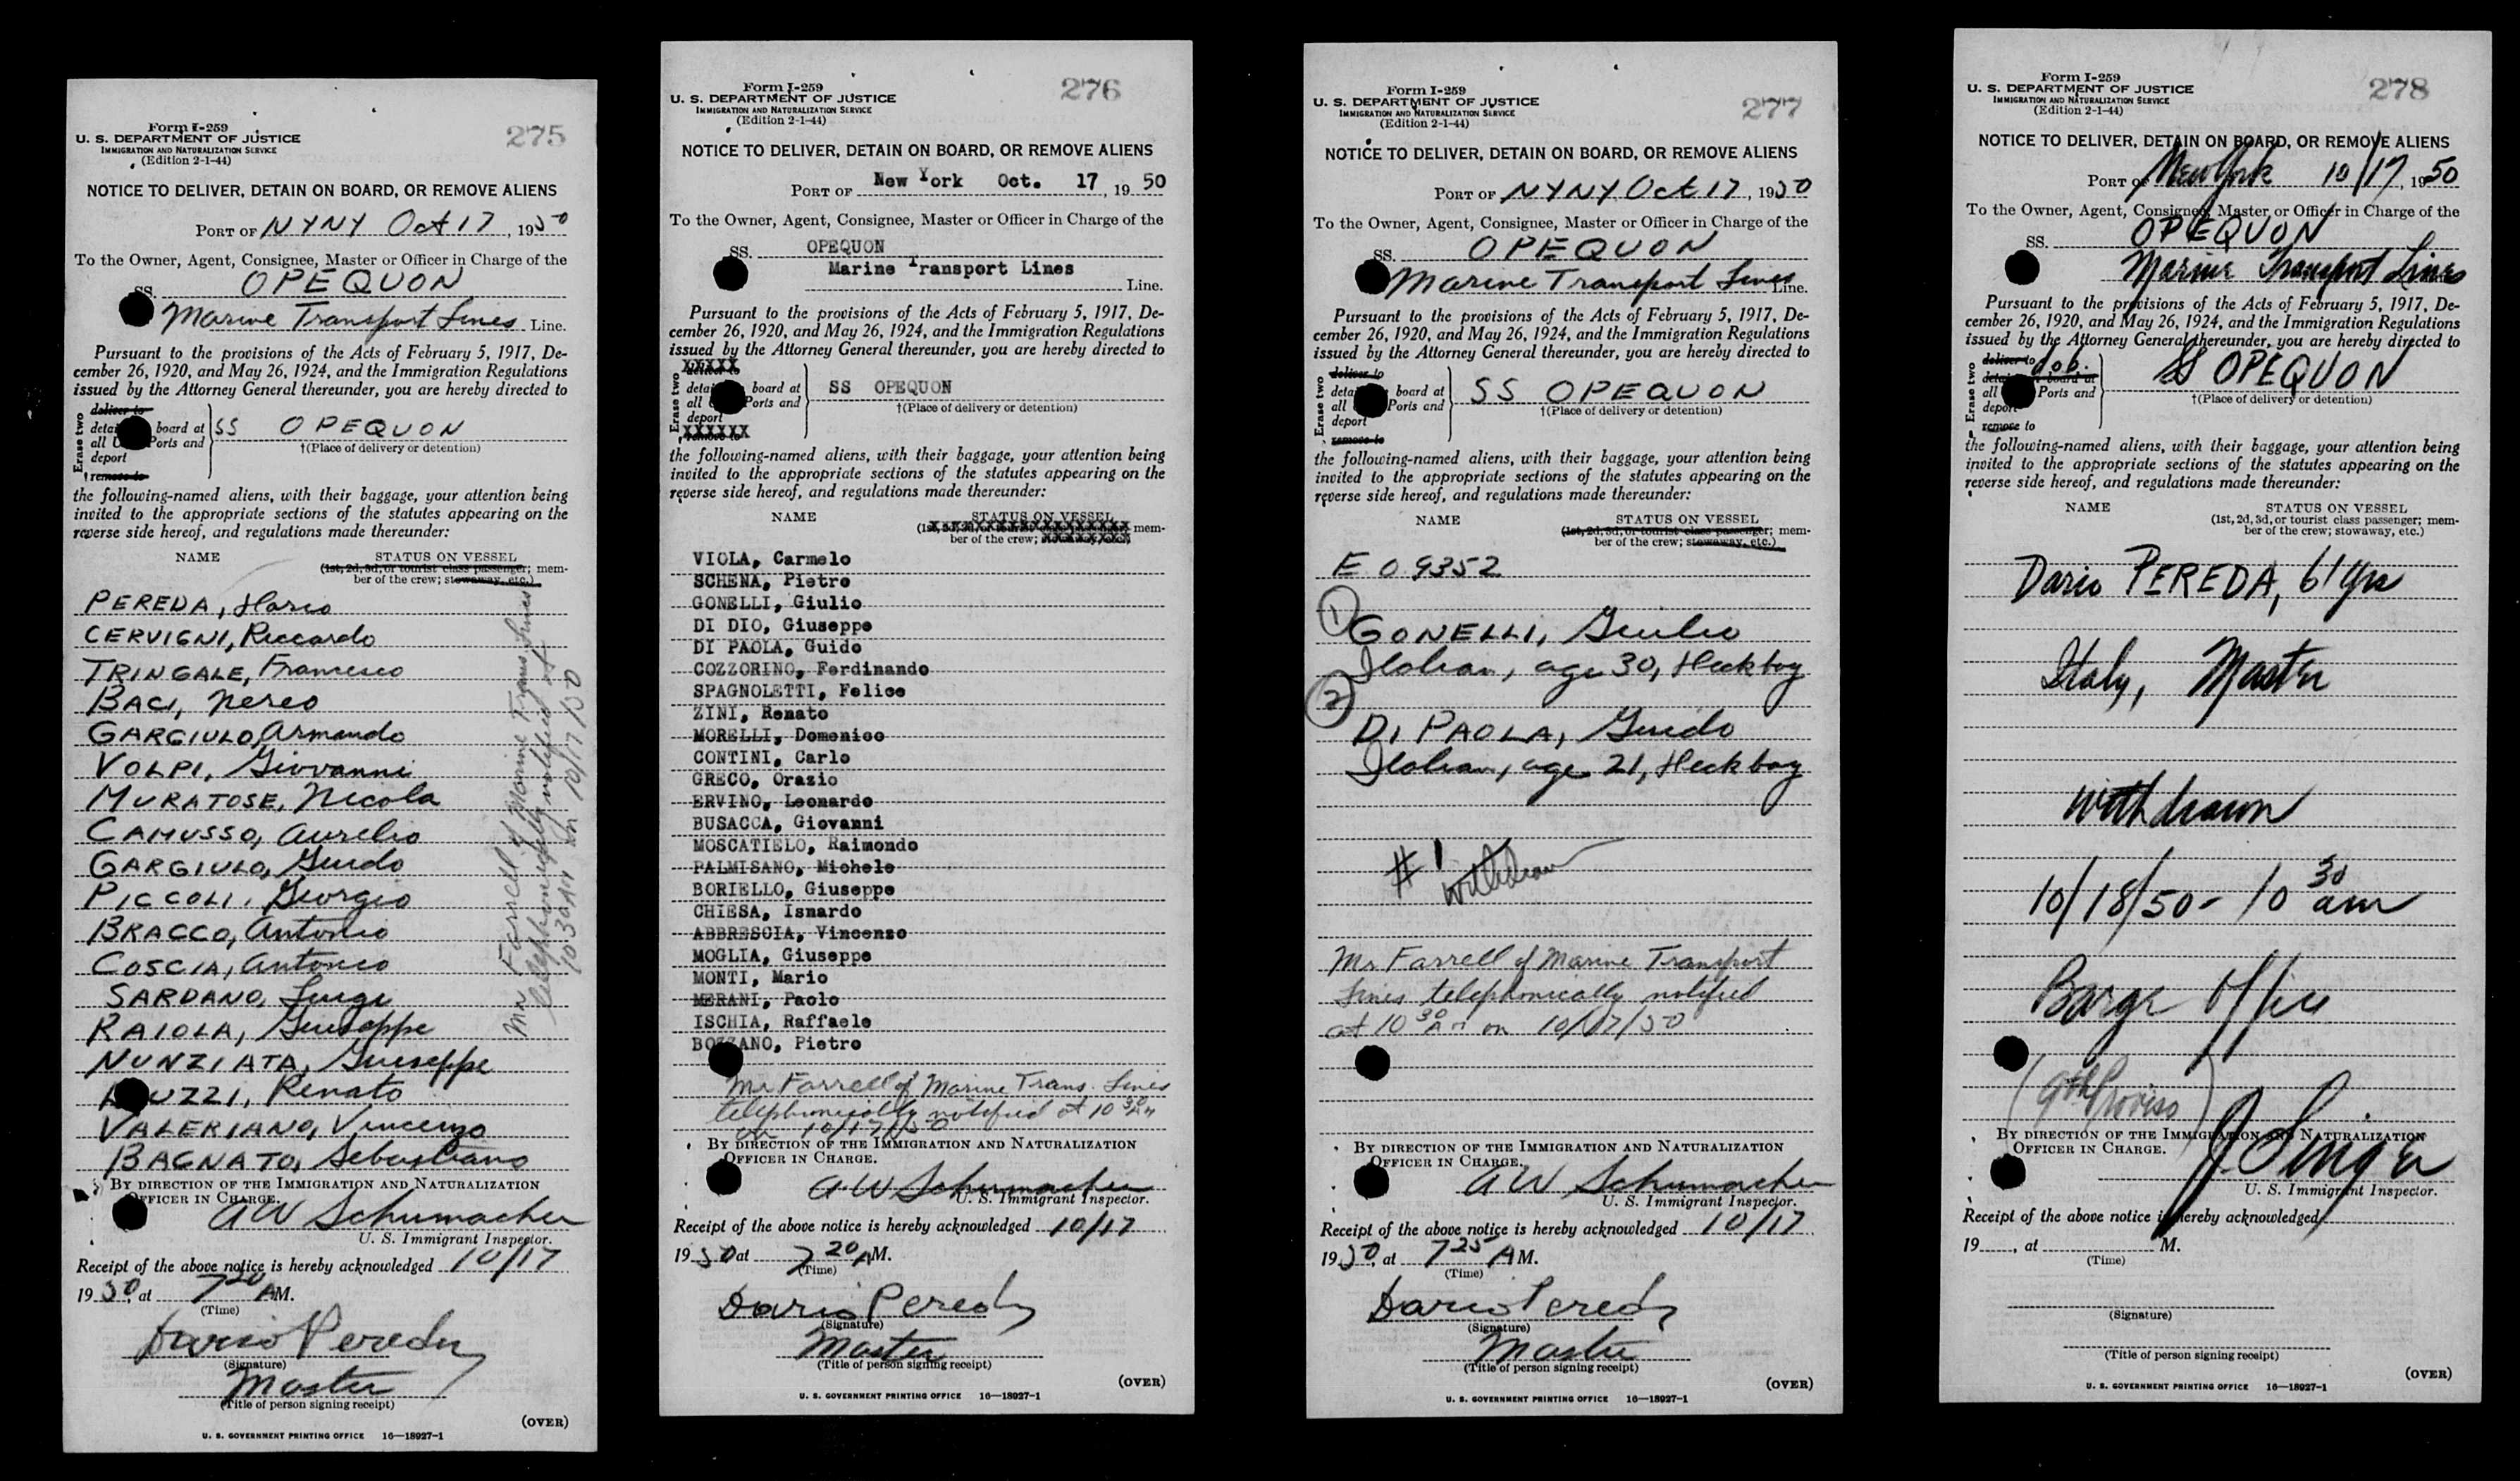 275
Form I-259
U. S. DEPARTMENT OF JUSTICE
IMMIGRATION AND NATURALIZATION SERVICE
(Edition 2-1-44)
NOTICE TO DELIVER, DETAIN ON BOARD, OR REMOVE ALIENS
PORT OF NYNY Oct 17, 1950
To the Owner, Agent, Consignee, Master or Officer in Charge of the
SS. OPEQUON
Marine Transport Lines Line.
Pursuant to the provisions of the Acts of February 5, 1917, De-
cember 26, 1920, and May 26, 1924, and the Immigration Regulations
issued by the Attorney General thereunder, you are hereby directed to
Erase two
deliver to
detai board at
all U Ports and
deport
remove to
SS OPEQUON
†(Place of delivery or detention)
the following-named aliens, with their baggage, your attention being
invited to the appropriate sections of the statutes appearing on the
reverse side hereof, and regulations made thereunder:
NAME STATUS ON VESSEL
(1st, 2d, 3d, or tourist class passenger; mem-
ber of the crew; stowaway, etc.)
PEREDA, Dario
CERVIGNI, Riccardo
TRINGALE, Francesco
BACI, Nereo
GARGIULO, Armando
VOLPI, Giovanni
MURATOSE, Nicola
CAMUSSO, Aurelio
GARGIULO, Guido
PICCOLI, Giorgio
BRACCO, Antonio
COSCIA, Antonio
SARDANO, Luigi
RAIOLA, Giuseppe
NUNZIATA, Giuseppe
UZZI, Renato
VALERIANO, Vincenzo
BAGNATO, Sebastiano
Mr Farrell of Marine Trans. Lines
telephonically notified at
10 30 AM on 10/17/50
BY DIRECTION OF THE IMMIGRATION AND NATURALIZATION
OFFICER IN CHARGE.
A W Schumacher
U. S. Immigrant Inspector.
Receipt of the above notice is hereby acknowledged 10/17
1950, at 7 20 AM.
(Time)
Dario Pereda
(Signature)
Master
(Title of person signing receipt)
(OVER)
U. S. GOVERNMENT PRINTING OFFICE 16—18927-1
276
Form I-259
U. S. DEPARTMENT OF JUSTICE
IMMIGRATION AND NATURALIZATION SERVICE
(Edition 2-1-44)
NOTICE TO DELIVER, DETAIN ON BOARD, OR REMOVE ALIENS
PORT OF New York Oct. 17, 1950
To the Owner, Agent, Consignee, Master or Officer in Charge of the
SS. OPEQUON
Marine Transport Lines
Line.
Pursuant to the provisions of the Acts of February 5, 1917, De-
cember 26, 1920, and May 26, 1924, and the Immigration Regulations
issued by the Attorney General thereunder, you are hereby directed to
XXXXX
Erase two
deliver to
detai board at
all Ports and
deport
XXXXXX
remove to
SS OPEQUON
†(Place of delivery or detention)
the following-named aliens, with their baggage, your attention being
invited to the appropriate sections of the statutes appearing on the
reverse side hereof, and regulations made thereunder:
NAME STATUS ON VESSEL
(1st, 2d, 3d, or tourist class passenger; mem-
ber of the crew; stowaway, etc.)
VIOLA, Carmelo
SCHENA, Pietro
GONELLI, Giulio
DI DIO, Giuseppe
DI PAOLA, Guido
COZZORINO, Ferdinando
SPAGNOLETTI, Felice
ZINI, Renato
MORELLI, Domenico
CONTINI, Carlo
GRECO, Orazio
ERVINO, Leonardo
BUSACCA, Giovanni
MOSCATIELO, Raimondo
PALMISANO, Michele
BORIELLO, Giuseppe
CHIESA, Isnardo
ABBRESCIA, Vincenzo
MOGLIA, Giuseppe
MONTI, Mario
MERANI, Paolo
ISCHIA, Raffaele
BOZZANO, Pietro
Mr Farrell of Marine Trans. Lines
telephonically notified at 10 30 AM
on 10/17/50
BY DIRECTION OF THE IMMIGRATION AND NATURALIZATION
OFFICER IN CHARGE.
A W Schumacher
U. S. Immigrant Inspector.
Receipt of the above notice is hereby acknowledged 10/17
1950 at 7 20 AM.
(Time)
Dario Pereda
(Signature)
Master
(Title of person signing receipt)
(OVER)
U. S. GOVERNMENT PRINTING OFFICE 16—18927-1
277
Form I-259
U. S. DEPARTMENT OF JUSTICE
IMMIGRATION AND NATURALIZATION SERVICE
(Edition 2-1-44)
NOTICE TO DELIVER, DETAIN ON BOARD, OR REMOVE ALIENS
PORT OF NYNY Oct 17, 1950
To the Owner, Agent, Consignee, Master or Officer in Charge of the
SS. OPEQUON
Marine Transport Lines Line.
Pursuant to the provisions of the Acts of February 5, 1917, De-
cember 26, 1920, and May 26, 1924, and the Immigration Regulations
issued by the Attorney General thereunder, you are hereby directed to
Erase two
deliver to
deta board at
all Ports and
deport
remove to
SS OPEQUON
†(Place of delivery or detention)
the following-named aliens, with their baggage, your attention being
invited to the appropriate sections of the statutes appearing on the
reverse side hereof, and regulations made thereunder:
NAME STATUS ON VESSEL
(1st, 2d, 3d, or tourist class passenger; mem-
ber of the crew; stowaway, etc.)
E 09352
1 GONELLI, Giulio
Italian, age 30, Deckboy
2 DI PAOLA, Guido
Italian, age 21, Deckboy
#1 withdrawn
Mr Farrell of Marine Transport
Lines telephonically notified
at 10 30 AM on 10/17/50
BY DIRECTION OF THE IMMIGRATION AND NATURALIZATION
OFFICER IN CHARGE.
A W Schumacher
U. S. Immigrant Inspector.
Receipt of the above notice is hereby acknowledged 10/17
1950, at 7 25 AM.
(Time)
Dario Pereda
(Signature)
Master
(Title of person signing receipt)
(OVER)
U. S. GOVERNMENT PRINTING OFFICE 16—18927-1
278
Form I-259
U. S. DEPARTMENT OF JUSTICE
IMMIGRATION AND NATURALIZATION SERVICE
(Edition 2-1-44)
NOTICE TO DELIVER, DETAIN ON BOARD, OR REMOVE ALIENS
PORT OF New York 10/17, 1950
To the Owner, Agent, Consignee, Master or Officer in Charge of the
SS. OPEQUON
Marine Transport Lines
Pursuant to the provisions of the Acts of February 5, 1917, De-
cember 26, 1920, and May 26, 1924, and the Immigration Regulations
issued by the Attorney General thereunder, you are hereby directed to
Erase two
deliver to d.o.b.
deta board at
all Ports and
deport
remove to
SS OPEQUON
†(Place of delivery or detention)
the following-named aliens, with their baggage, your attention being
invited to the appropriate sections of the statutes appearing on the
reverse side hereof, and regulations made thereunder:
NAME STATUS ON VESSEL
(1st, 2d, 3d, or tourist class passenger; mem-
ber of the crew; stowaway, etc.)
Dario PEREDA, 61 yrs
Italy, Master
withdrawn
10/18/50 - 10 30 am
Barge Office
(9th Proviso)
BY DIRECTION OF THE IMMIGRATION AND NATURALIZATION
OFFICER IN CHARGE.
J. Singer
U. S. Immigrant Inspector.
Receipt of the above notice is hereby acknowledged
19 , at M.
(Time)
(Signature)
(Title of person signing receipt)
(OVER)
U. S. GOVERNMENT PRINTING OFFICE 16—18927-1